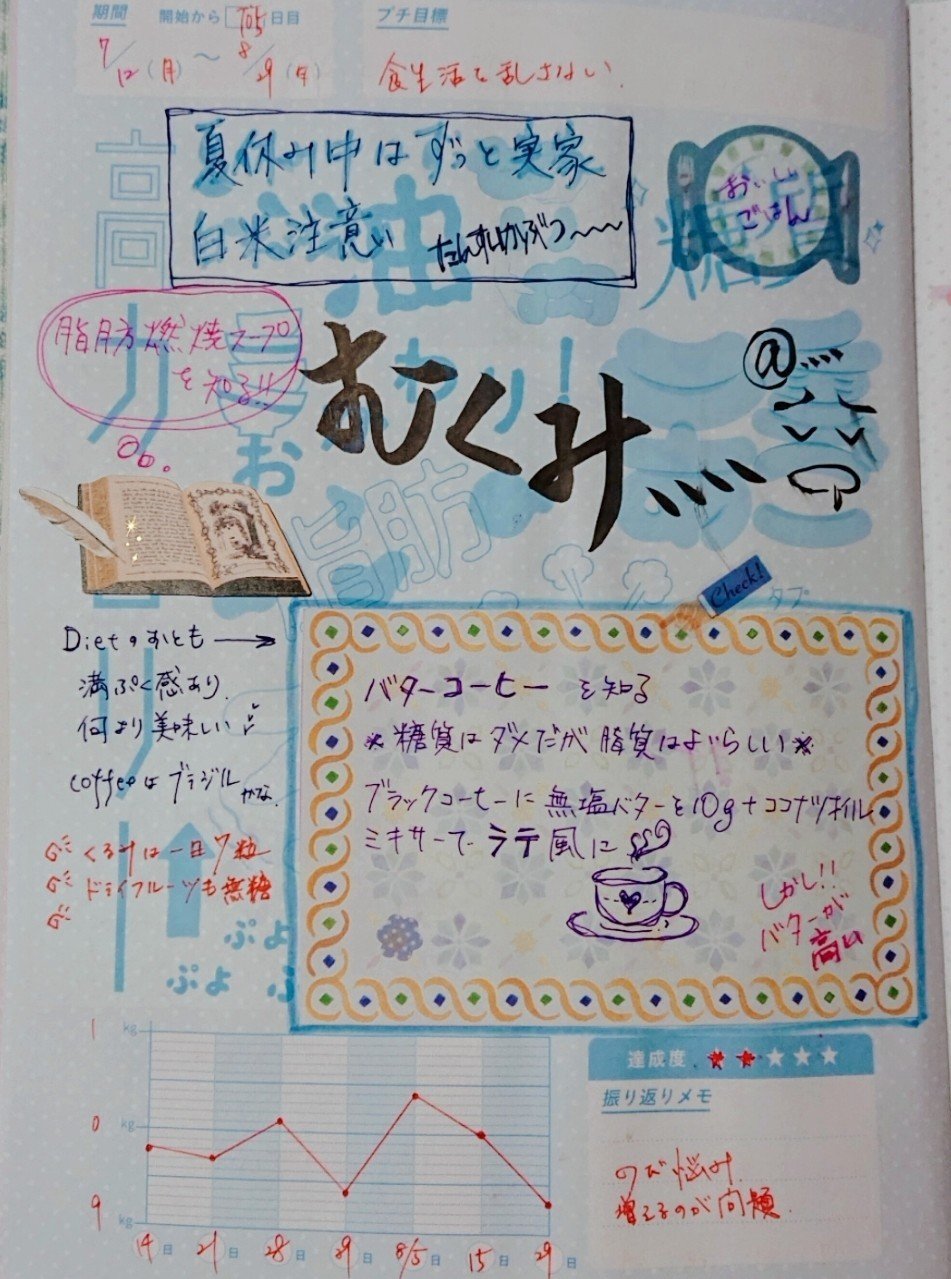 期間 開始から 105 日目
7/12(月)～8/29(月)
プチ目標
食生活を乱さない
夏休み中はずっと実家
白米注意い たんすいかぶつ～～
おいしい
ごはん
高カロリー
油
糖質
おかわり！
脂肪
脂肪燃焼スープ
を知る!!
むくみ
Check!
タプ
Dietのおとも→
満ぷく感あり
何より美味しい
coffeeはブラジルかな
くるみは一日7粒
ドライフルーツも無糖
バターコーヒーを知る
※糖質はダメだが脂質はよいらしい※
ブラックコーヒーに無塩バターを10g+ココナツオイル
ミキサーでラテ風に
しかし!!
バターが
高い
ぷよ
ぷよ ぷ
1 kg
0 kg
9 kg
14日 21日 28日 31日 8/5日 15日 29日
達成度 ★★★★★
振り返りメモ
のび悩み
増えるのが問題